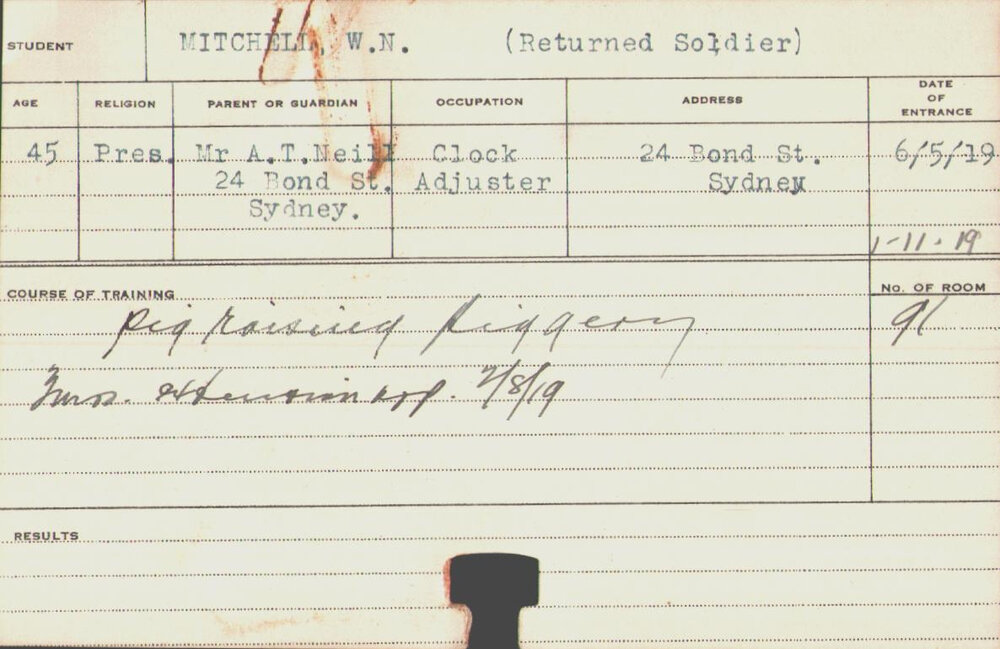 STUDENT MITCHELL, W.N. (Returned Soldier)
AGE RELIGION PARENT OR GUARDIAN OCCUPATION ADDRESS DATE OF ENTRANCE
45 Pres. Mr A.T.Neill Clock 24 Bond St. 6/5/19
24 Bond St. Adjuster Sydney
Sydney.
1-11-19
COURSE OF TRAINING No. OF ROOM
Pig raising Piggery 91
3mos. extension app. 7/8/19
RESULTS